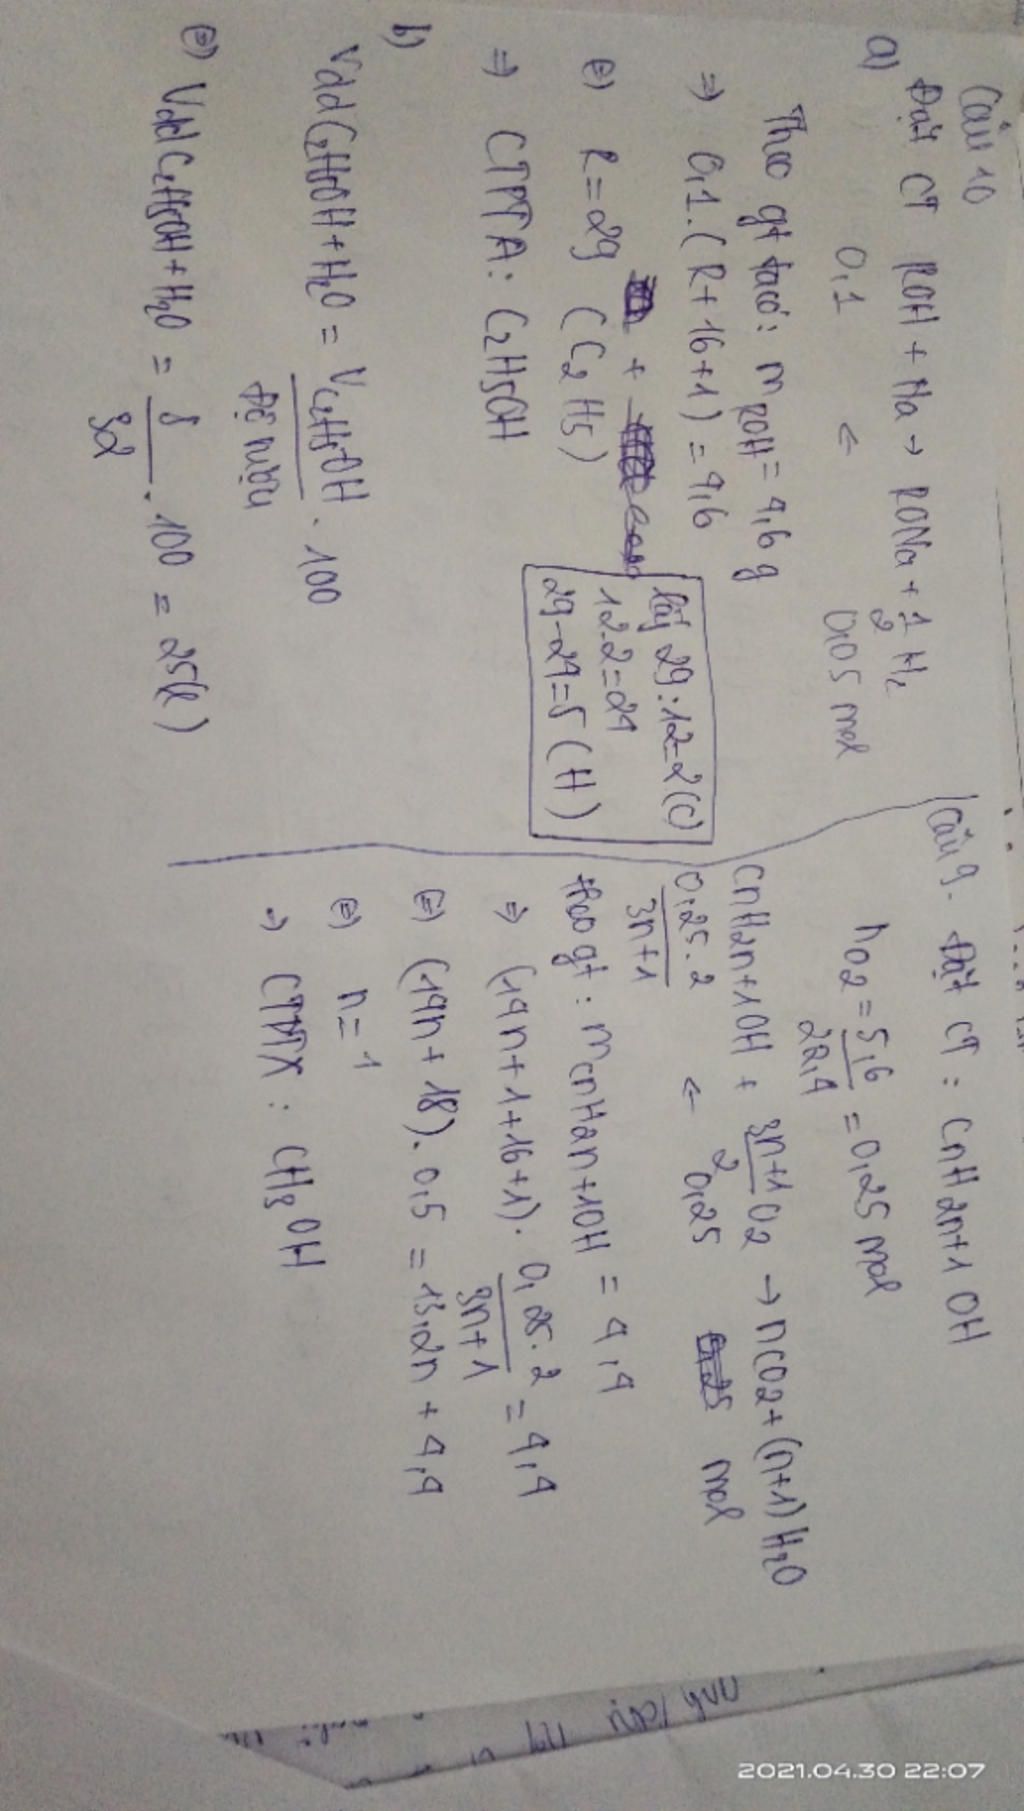 Câu 10
a) Đặt CT ROH + Na → RONa + 1/2 H2
0,1 ← 0,05 mol
Theo gt ta có: mROH = 4,6 g
⇒ 0,1.(R + 16 + 1) = 4,6
(=) R = 29 (C2H5)
⇒ CTPTA: C2H5OH
lấy 29:12=2(C)
12.2=24
29-24=5 (H)
b)
Vdd C2H5OH + H2O = VC2H5OH / Độ rượu . 100
(=) Vdd C2H5OH + H2O = 8/32 . 100 = 25(l)
Câu 9. Đặt CT: CnH2n+1OH
nO2 = 5,6/22,4 = 0,25 mol
CnH2n+1OH + 3n+1/2 O2 → nCO2 + (n+1)H2O
0,25.2/3n+1 ← 0,25 mol
theo gt: mCnH2n+1OH = 4,4
⇒ (14n+1+16+1). 0,25.2/3n+1 = 4,4
(=) (14n+18). 0,5 = 13,2n + 4,4
(=) n=1
⇒ CTPTX: CH3OH
2021.04.30 22:07